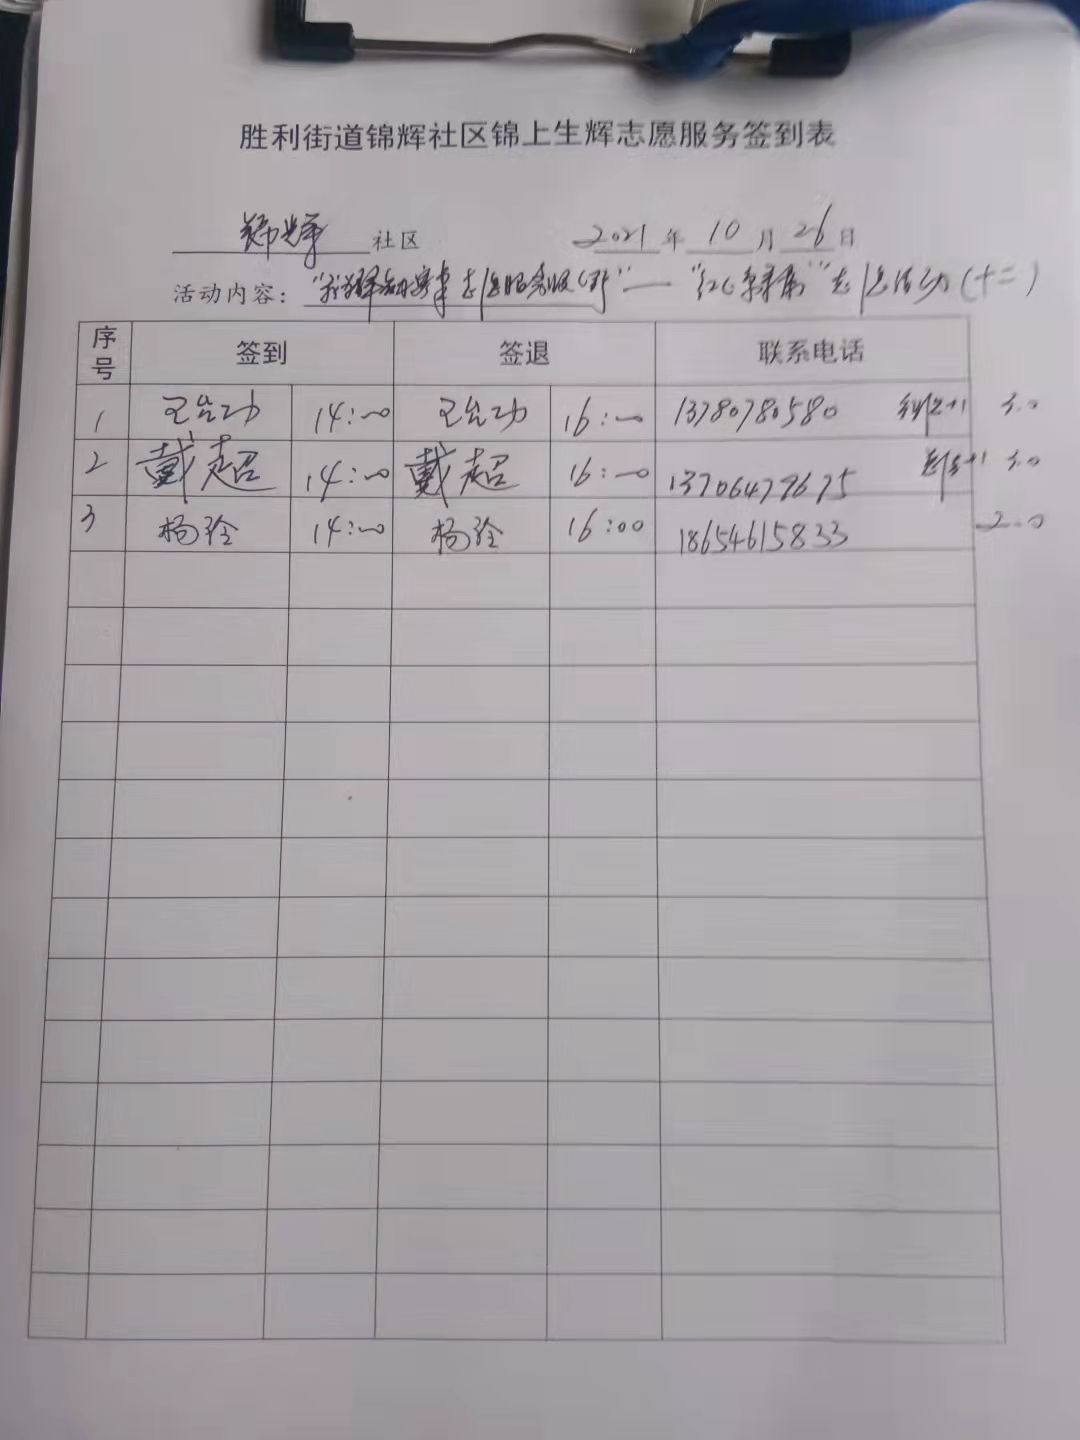 胜利街道锦辉社区锦上生辉志愿服务签到表
锦辉 社区 2021 年 10 月 26 日
活动内容: 志愿活动(十二)
序号 签到 签退 联系电话
1 14:00 16:00 13780780580 3.0
2 戴超 14:00 戴超 16:00 13706479675 3.0
3 杨玲 14:00 杨玲 16:00 18654615833 2.0